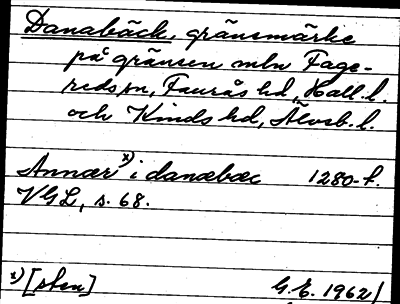 Danabäck, gränsmärke
på gränsen mln Fage-
reds sn, Faurås hd, Hall. l.
och Kinds hd, Älvsb. l.
Annær x) i danæbæc 1280-t.
VGL, s. 68.
x) [sten] G.E. 1962